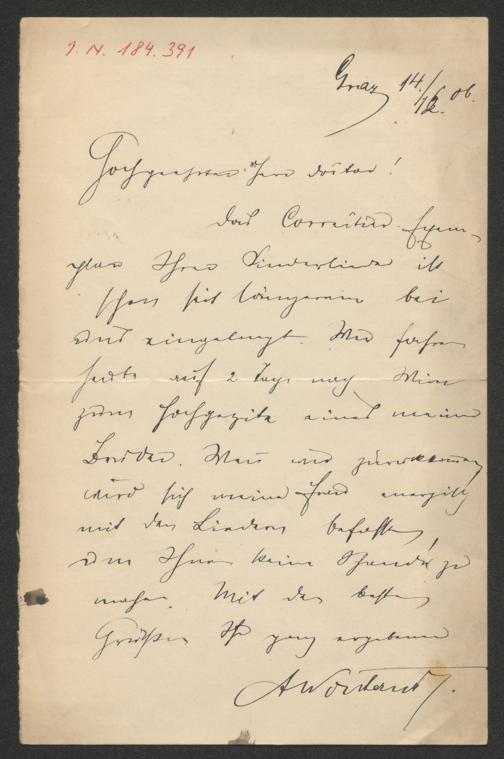 I. N. 184.391
Graz 14./12. 06.
Hochgeehrter Herr Doctor!
Das Correctur-Exem-
plar Ihrer Kinderlieder ist
schon seit längerem bei
uns eingelangt. Wir fahren
heute auf 2 Tage nach Wien
zum Hochzeite eines meiner
Brüder. Wenn wir zurückkommen,
wird sich meine Frau energisch
mit den Liedern befassen,
um Ihnen keine Schande zu
machen. Mit den besten
Grüßen Ihr ganz ergebener